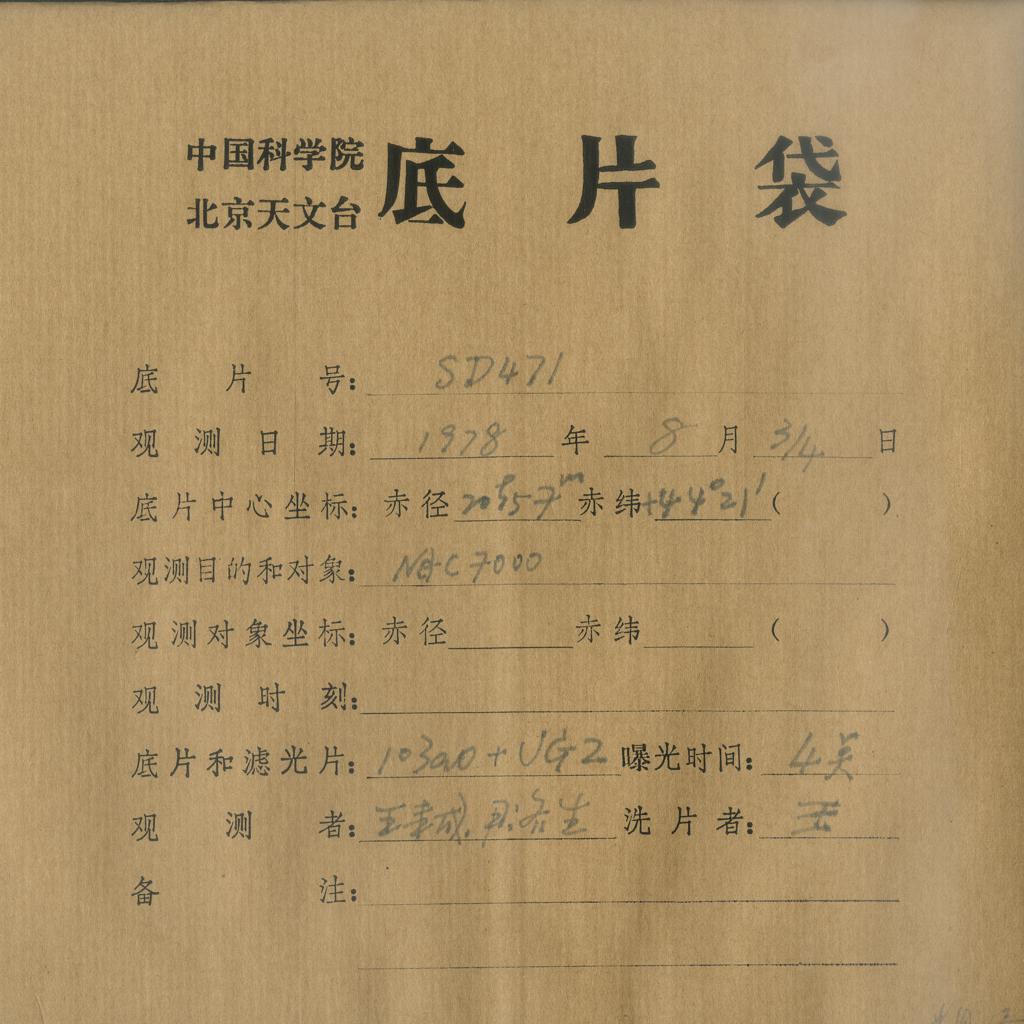 中国科学院
北京天文台
底片袋
底片号: SD471
观测日期: 1978年 8月 3/4日
底片中心坐标: 赤径 20h57m 赤纬 +44°21′ ( )
观测目的和对象: NGC 7000
观测对象坐标: 赤径 赤纬 ( )
观测时刻:
底片和滤光片: 103aO + UG2 曝光时间: 4
观测者: 王 洗片者: 王
备注: